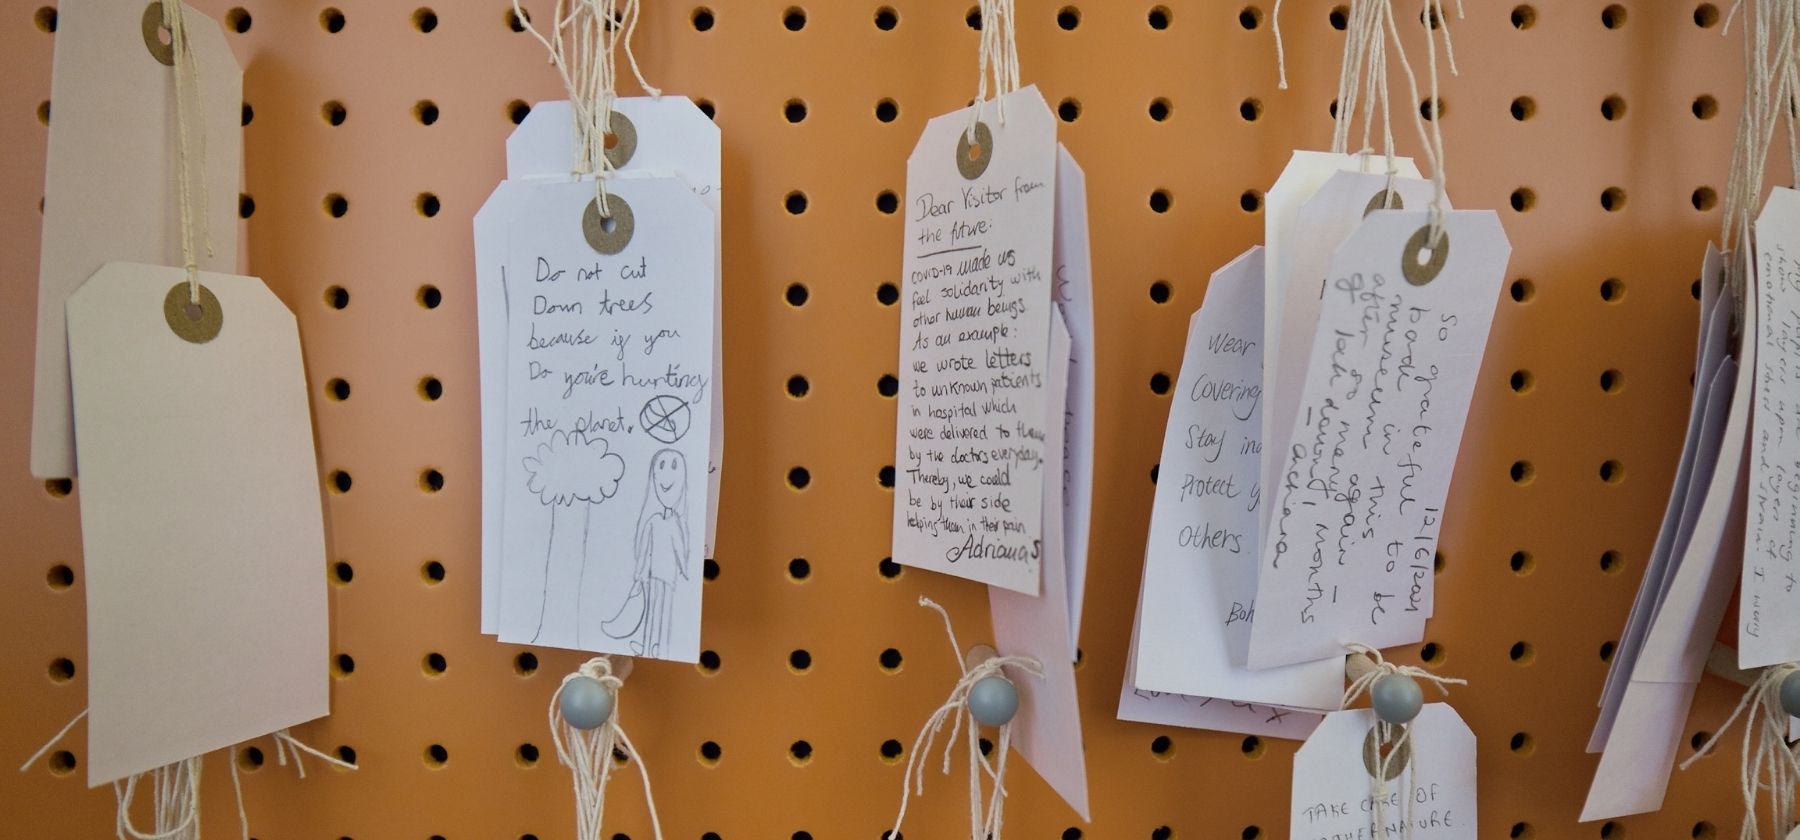 Do not cut
Down trees
because if you
Do you're hurting
the planet.
Dear Visitor from
the future:
COVID-19 made us
feel solidarity with
other human beings
As an example:
we wrote letters
to unknown patients
in hospital which
were delivered to them
by the doctors everyday.
Thereby, we could
be by their side
helping them in their pain
Adriana S
Wear
Covering
Stay
Protect
Others.
12/6/2021
So grateful to be
back in this
museum again –
after so many months
of lockdown!
– Anchara
TAKE CARE OF
MOTHER NATURE.
beginning to
show layers upon layers of
emotional stress and strain. I